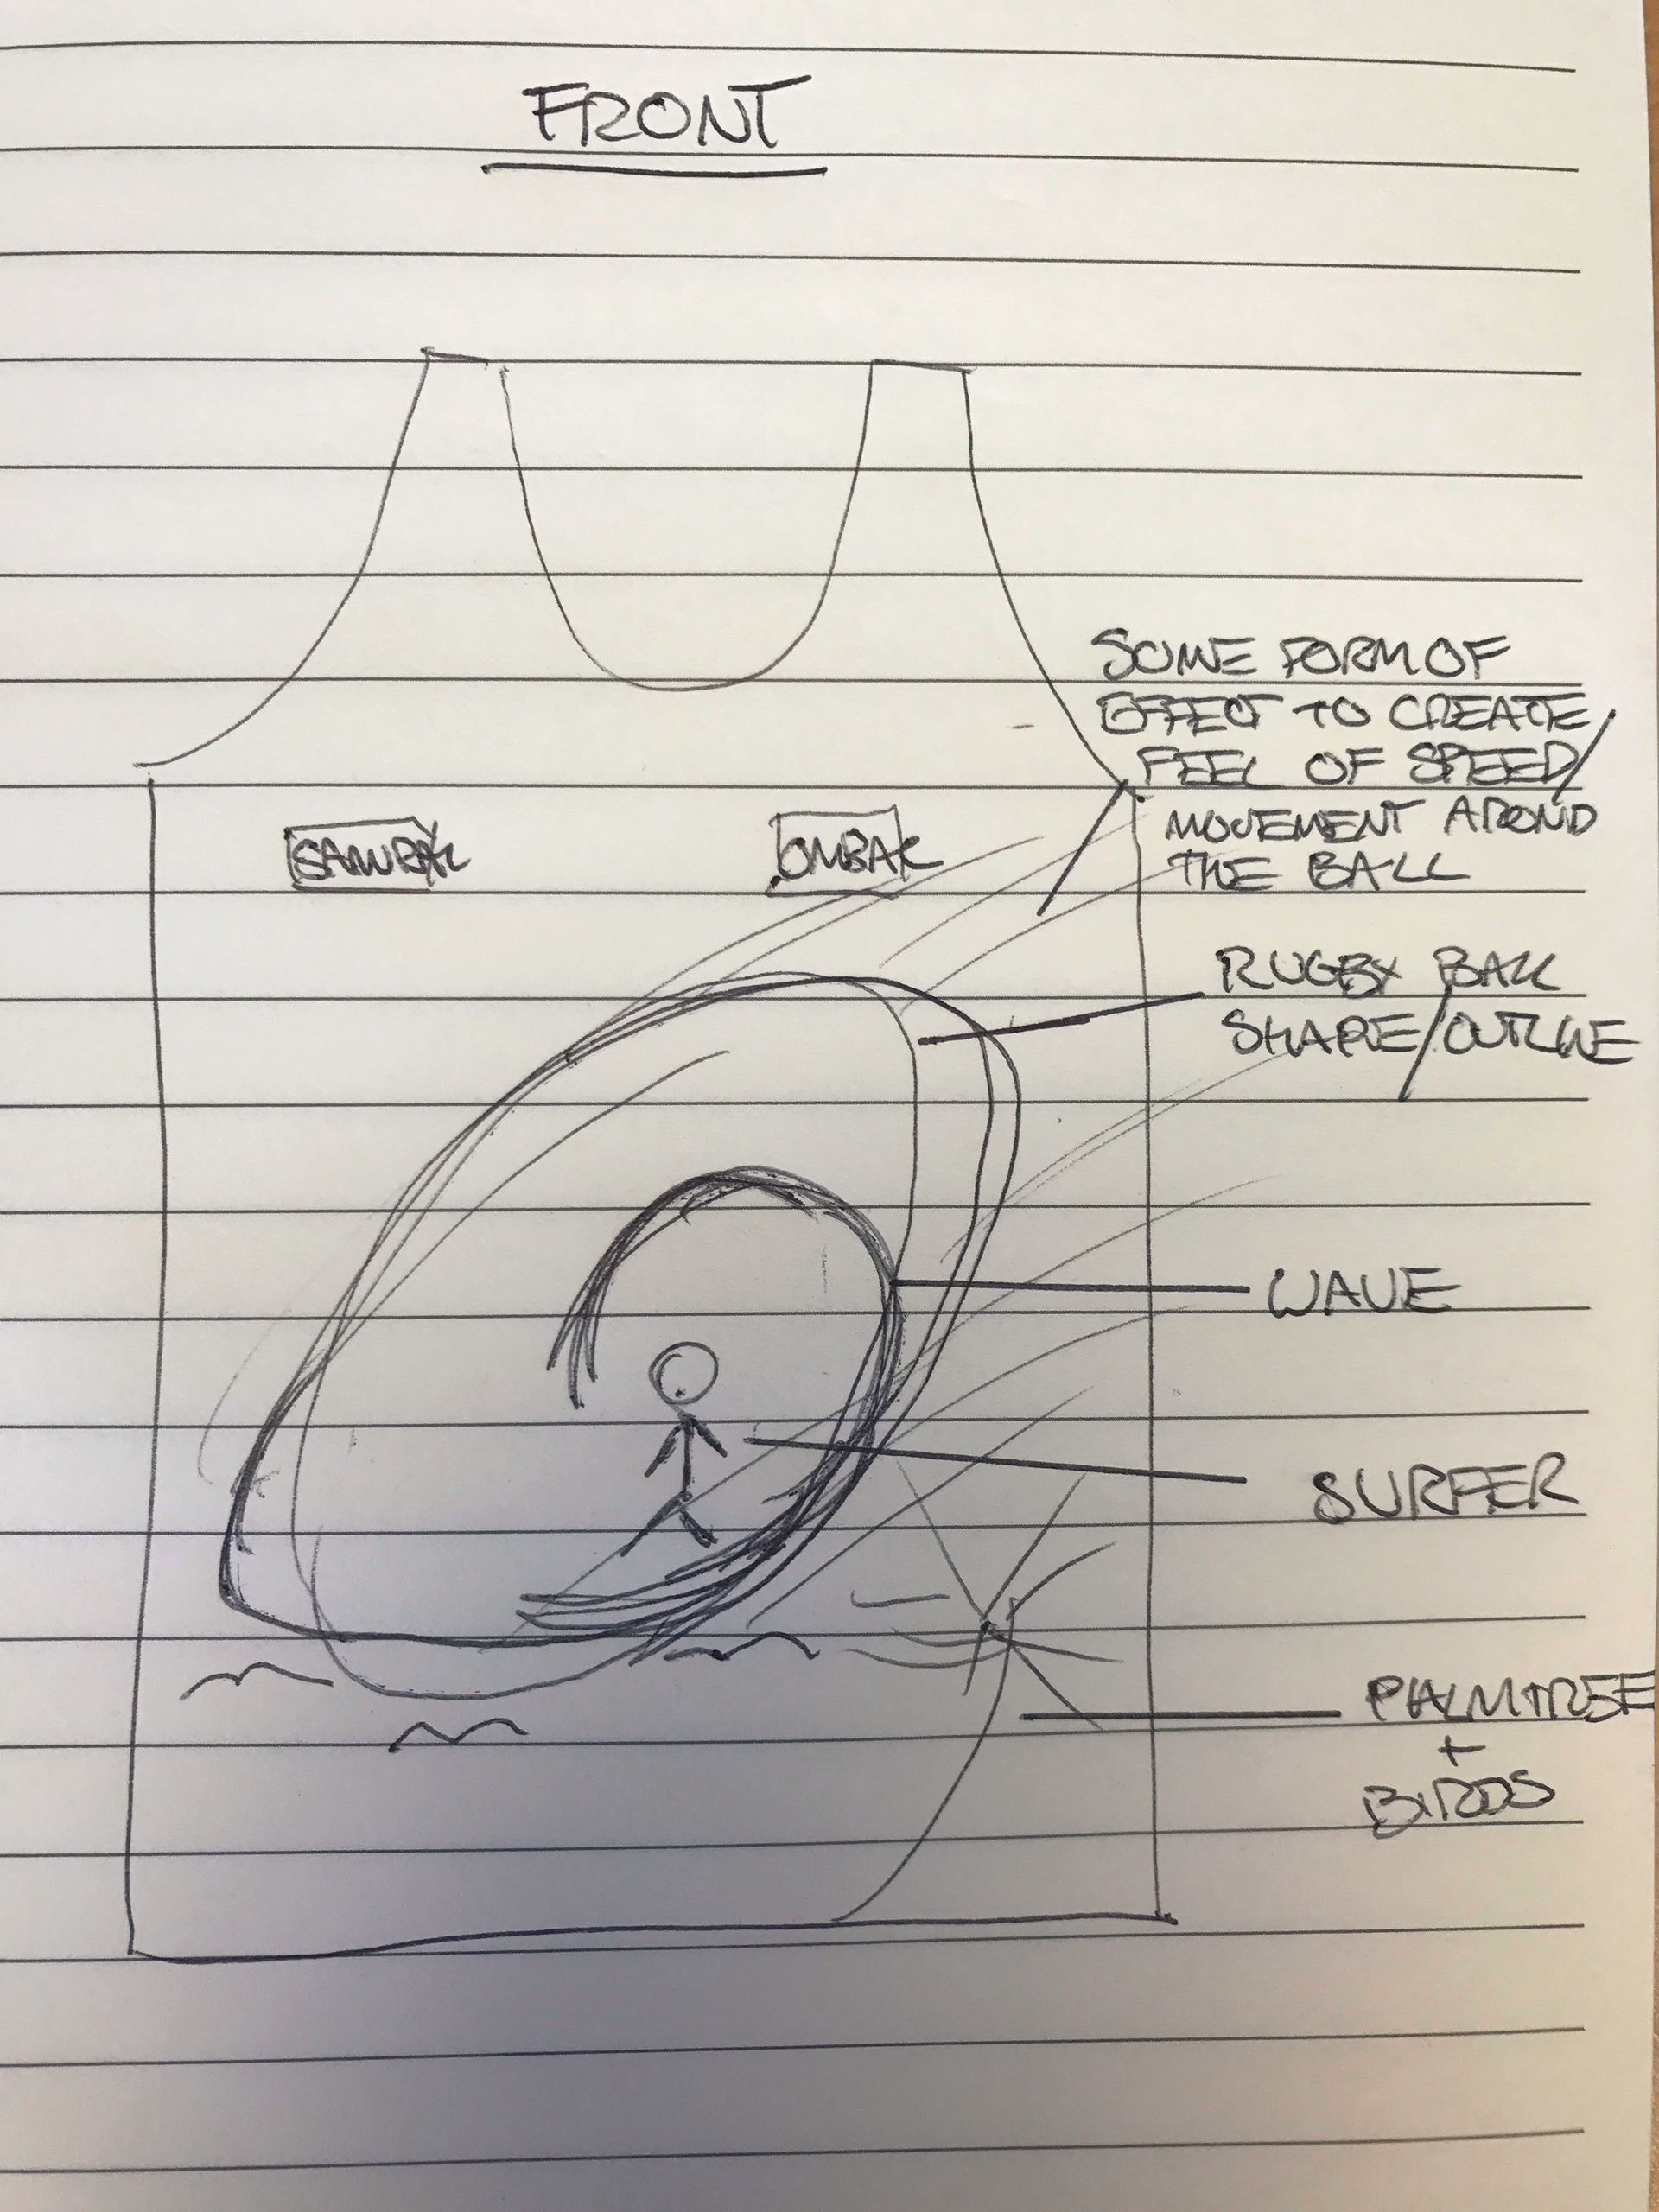 FRONT
SOME FORM OF
EFFECT TO CREATE
FEEL OF SPEED/
MOVEMENT AROUND
THE BALL
OMBAK
RUGBY BALL
SHAPE/OUTLINE
WAVE
SURFER
PALMTREE
+
BIRDS